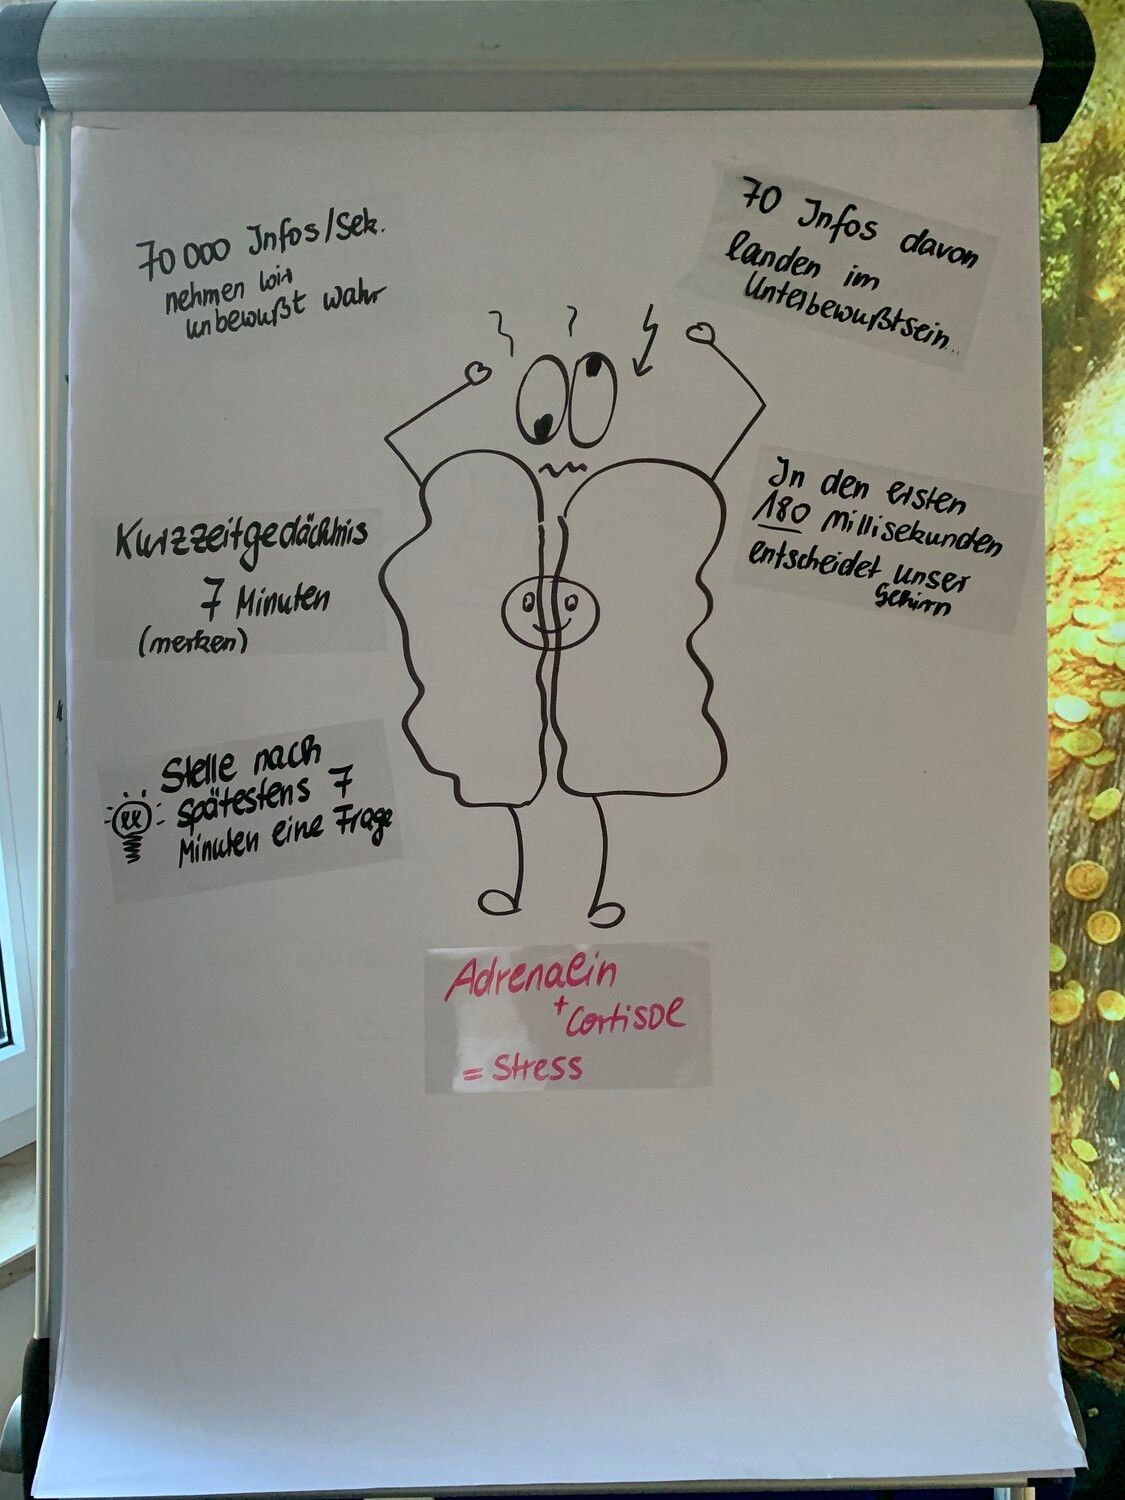 70 000 Infos/Sek.
nehmen wir
unbewußt wahr
70 Infos davon
landen im
Unterbewußtsein...
Kurzzeitgedächtnis
7 Minuten
(merken)
In den ersten
180 Millisekunden
entscheidet unser
Gehirn
Stelle nach
spätestens 7
Minuten eine Frage
Adrenalin
+ Cortisol
= Stress